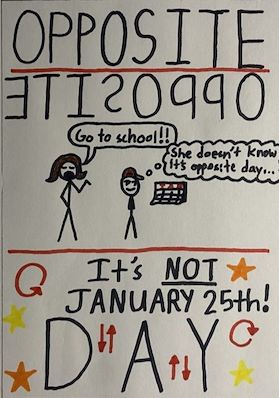 OPPOSITE
OPPOSITE
Go to school!!
She doesn't know
it's opposite day...
It's NOT
JANUARY 25th!
DAY